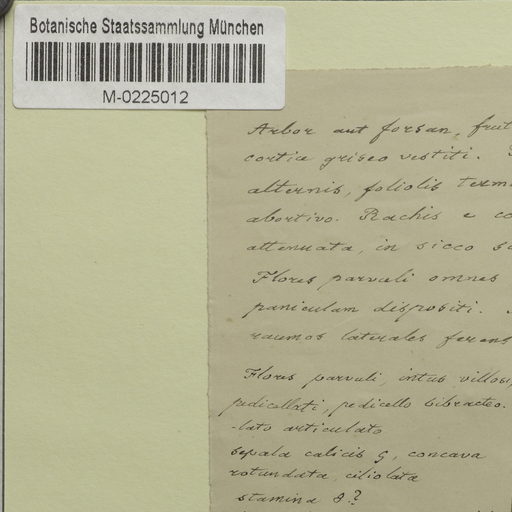 Botanische Staatssammlung München
M-0225012
Arbor aut forsan, frut
cortice griseo vestiti.
alternis, foliolis term
abortivo. Rachis e co
attenuata, in sicco
Flores parvuli omnes
paniculam dispositi.
ramos laterales ferens
Flores parvuli, intus villosi,
pedicellati, pedicello bibracteo-
-lato articulato
sepala calicis 5, concava
rotundata, ciliolata
stamina 8?